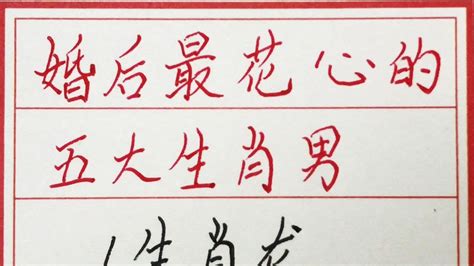 婚后最花心的
五大生肖男
1生肖龙